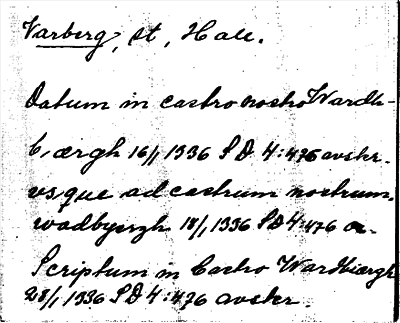 Varberg, st, Hall.
Datum in castro nostro Wardh-
bærgh 16/1 1336 SD 4:476 avskr.
usque ad castrum nostrum
wadbyærgh 18/1, 1336 SD 4:476 a-
Scriptum in Castro Wardbiærgh
28/1 1336 SD 4:476 avskr.